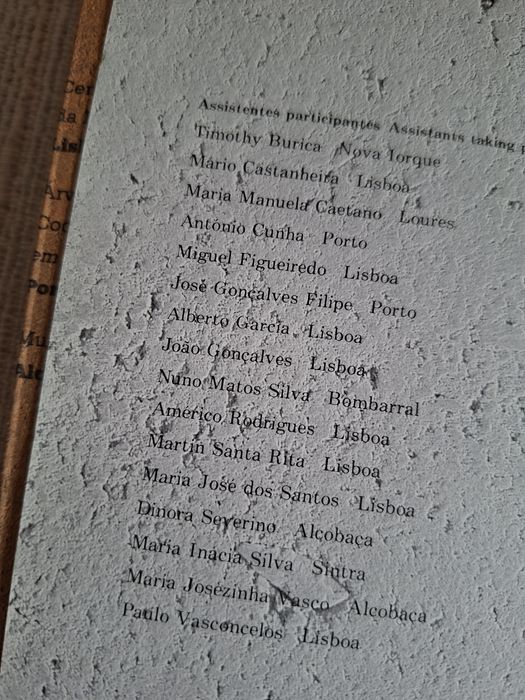 Assistentes participantes Assistants taking
Timothy Burica Nova Iorque
Mário Castanheira Lisboa
Maria Manuela Caetano Loures
António Cunha Porto
Miguel Figueiredo Lisboa
José Gonçalves Filipe Porto
Alberto Garcia Lisboa
João Gonçalves Lisboa
Nuno Matos Silva Bombarral
Américo Rodrigues Lisboa
Martin Santa Rita Lisboa
Maria José dos Santos Lisboa
Dinora Severino Alcobaça
Maria Inácia Silva Sintra
Maria Josézinha Vasco Alcobaça
Paulo Vasconcelos Lisboa